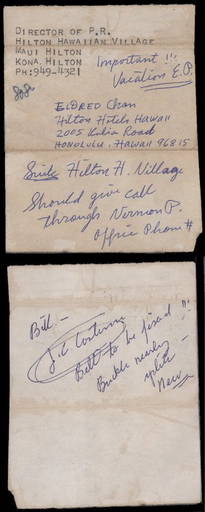 DIRECTOR OF P.R.
HILTON HAWAIIAN VILLAGE
MAUI HILTON
KONA HILTON
PH:949-4321
Important !!!
Vacation E.P.
ELDRED Chan
Hilton Hotels Hawaii
2005 Kalia Road
HONOLULU, HAWAII 96815
Hilton H. Village
Should give call
through Vernon P.
Office Phone #
Bill —
Costume
Belt to be fixed !!
Buckle nearly
split —
New